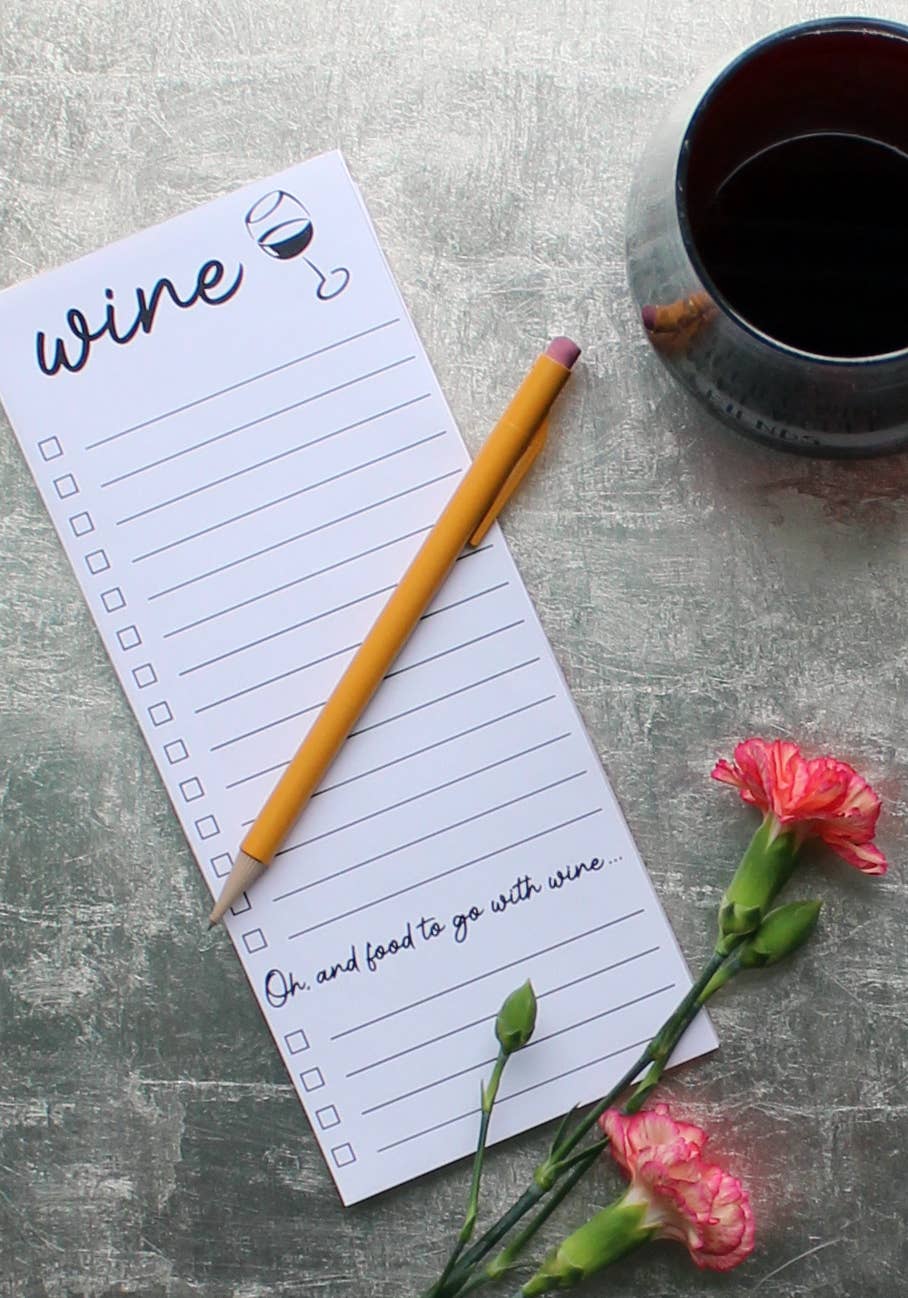 wine
Oh, and food to go with wine...